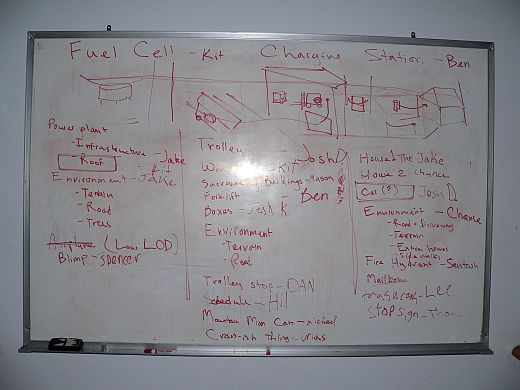 Fuel Cell - Kit Charging Station - Ben
Power plant
- Infrastructure - Jake
- Roof Kit
Environment - Jake
- Terrain
- Road
- Trees
Airplane (Low LOD)
Blimp - Spencer
Trolley - Josh D
- Kit
Surrounding Buildings - Mason
Forklift Ben
Boxes - Josh K
Environment
- Terrain
- Road
Trolley stop - DAN
Schedule - Hi!
Mountain Man Can - Michael
Cran-ish Thing - Urias
House 1 The Jake
House 2 Chance
Car (?) Josh D
Environment - Chance
- Road + Driveway
- Terrain
- Extra homes
- Sidewalks
Fire Hydrant - Santosh
Mailbox
trashcan - Lee
STOP sign -